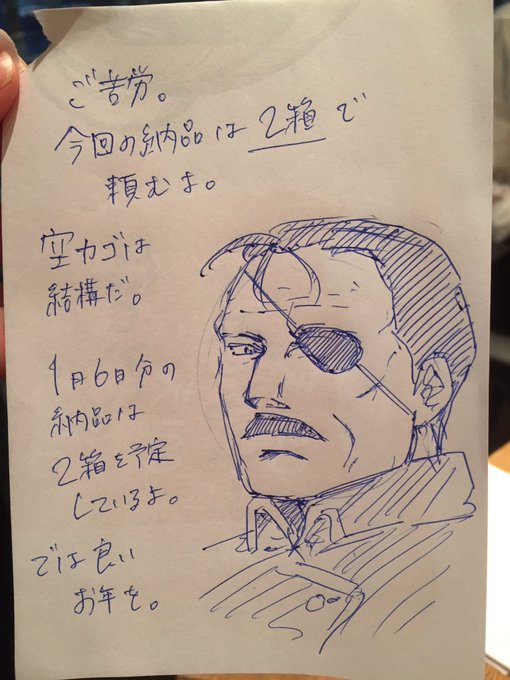 ご苦労。
今回の納品は2箱で
頼むよ。
空カゴは
結構だ。
1月6日分の
納品は
2箱を予定
しているよ。
では良い
お年を。